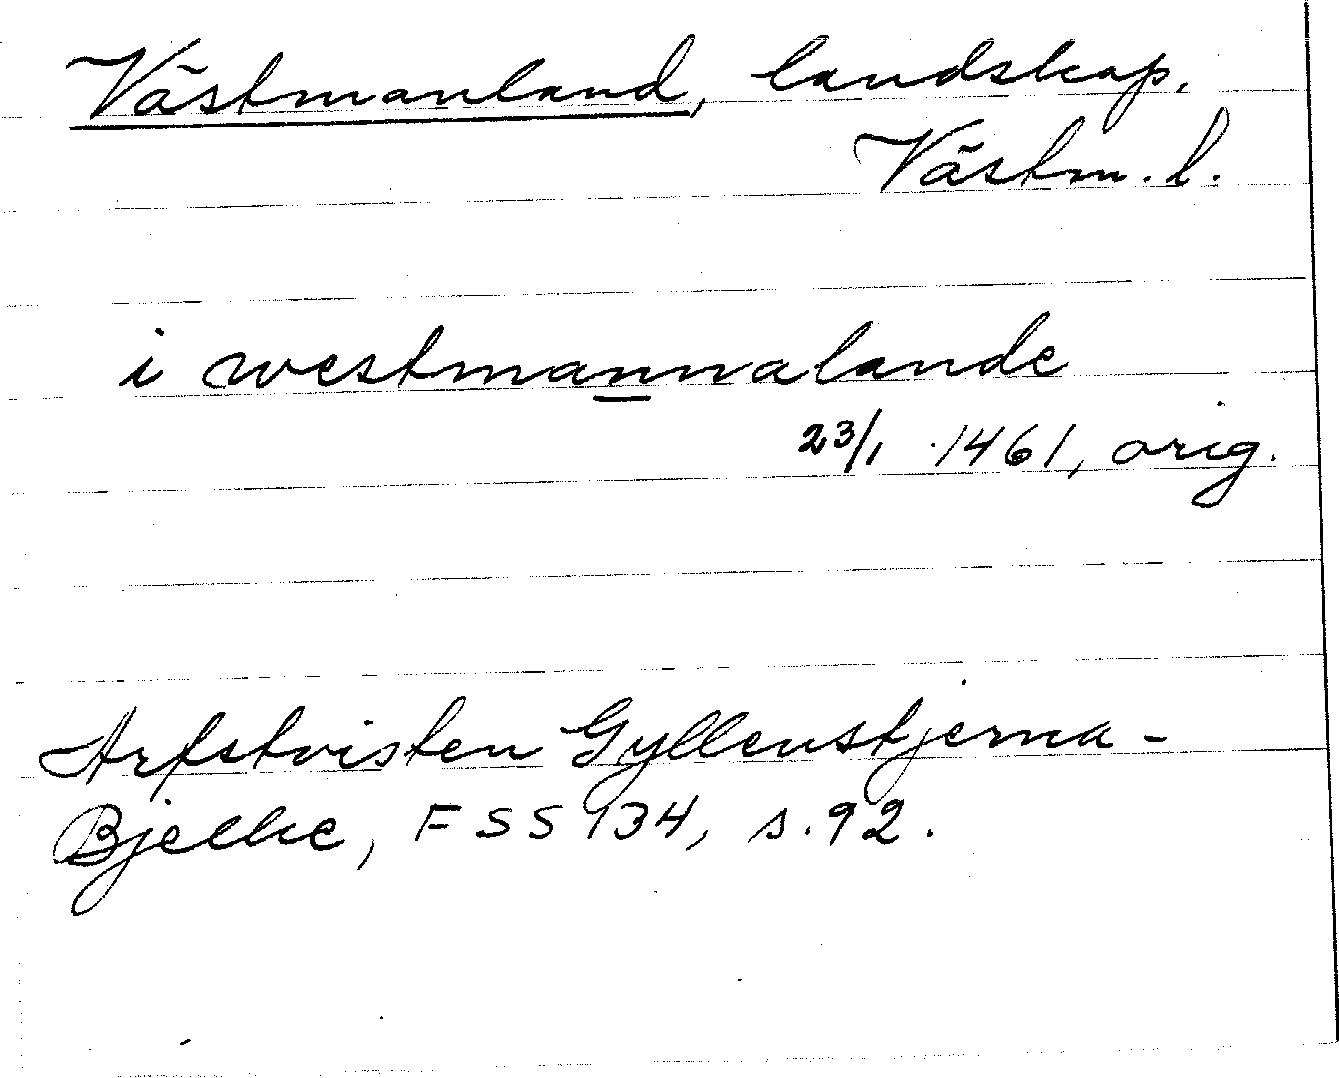 Västmanland, landskap.
Västm. l.
i westmannalande
23/1 1461, orig.
Arfstvisten Gyllenstjerna-
Bjelke, FSS 134, s. 92.